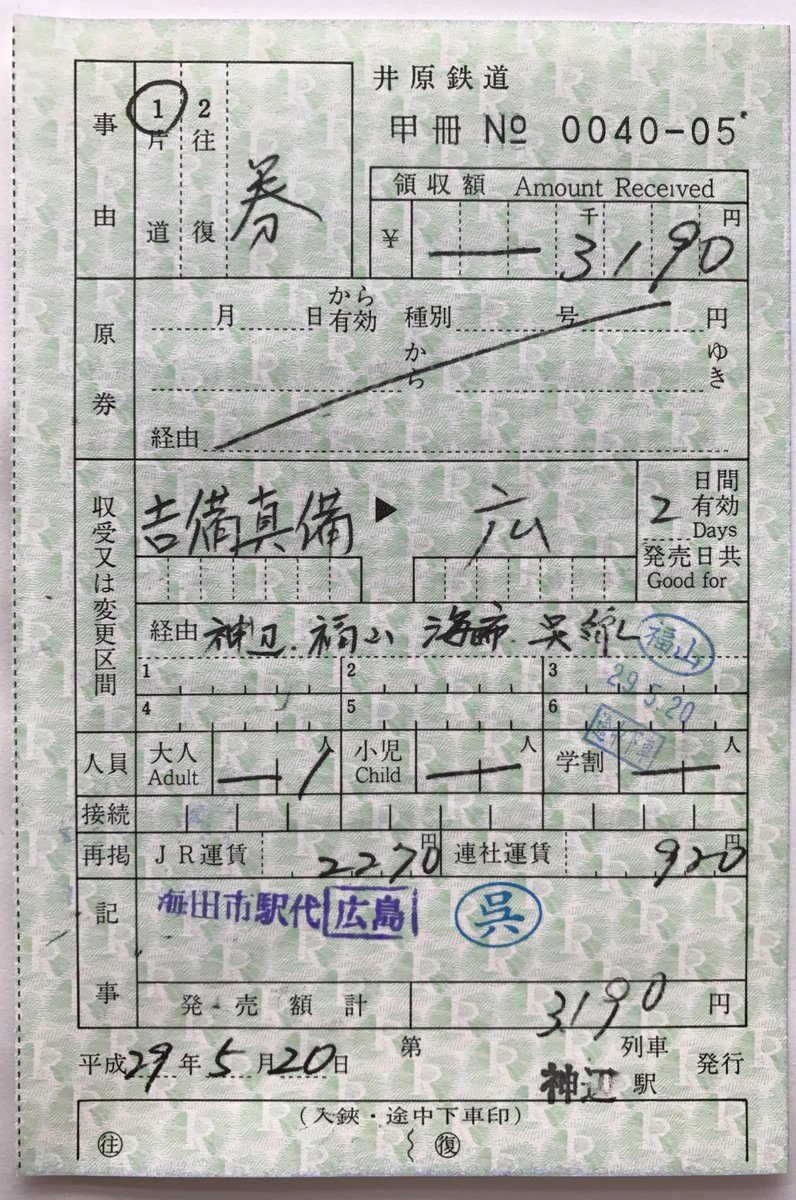 井原鉄道
甲冊 No 0040-05
事由
1 片道
2 往復
券
領収額 Amount Received
¥ 千 円
3190
原券
月 日から有効 種別 号 円
から ゆき
経由
収受又は変更区間
吉備真備 ▶ 広
2 日間有効 Days
発売日共 Good for
経由 神辺.福山 海田市.呉線
福山
29.5.20
途中下車
1 2 3
4 5 6
人員 大人 Adult 1 人 小児 Child 人 学割 人
接続
再掲 JR運賃 2270 円 連社運賃 920 円
記事
海田市駅代 広島 呉
発売額計 3190 円
平成 29 年 5 月 20 日 第 列車 発行
神辺 駅
(入鋏・途中下車印)
往 復